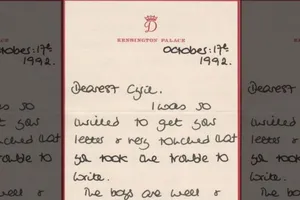 D
KENSINGTON PALACE
October:17th
1992.
Dearest Cyril,
I was so
thrilled to get your
letter & very touched that
you took the trouble to
write.
The boys are well &